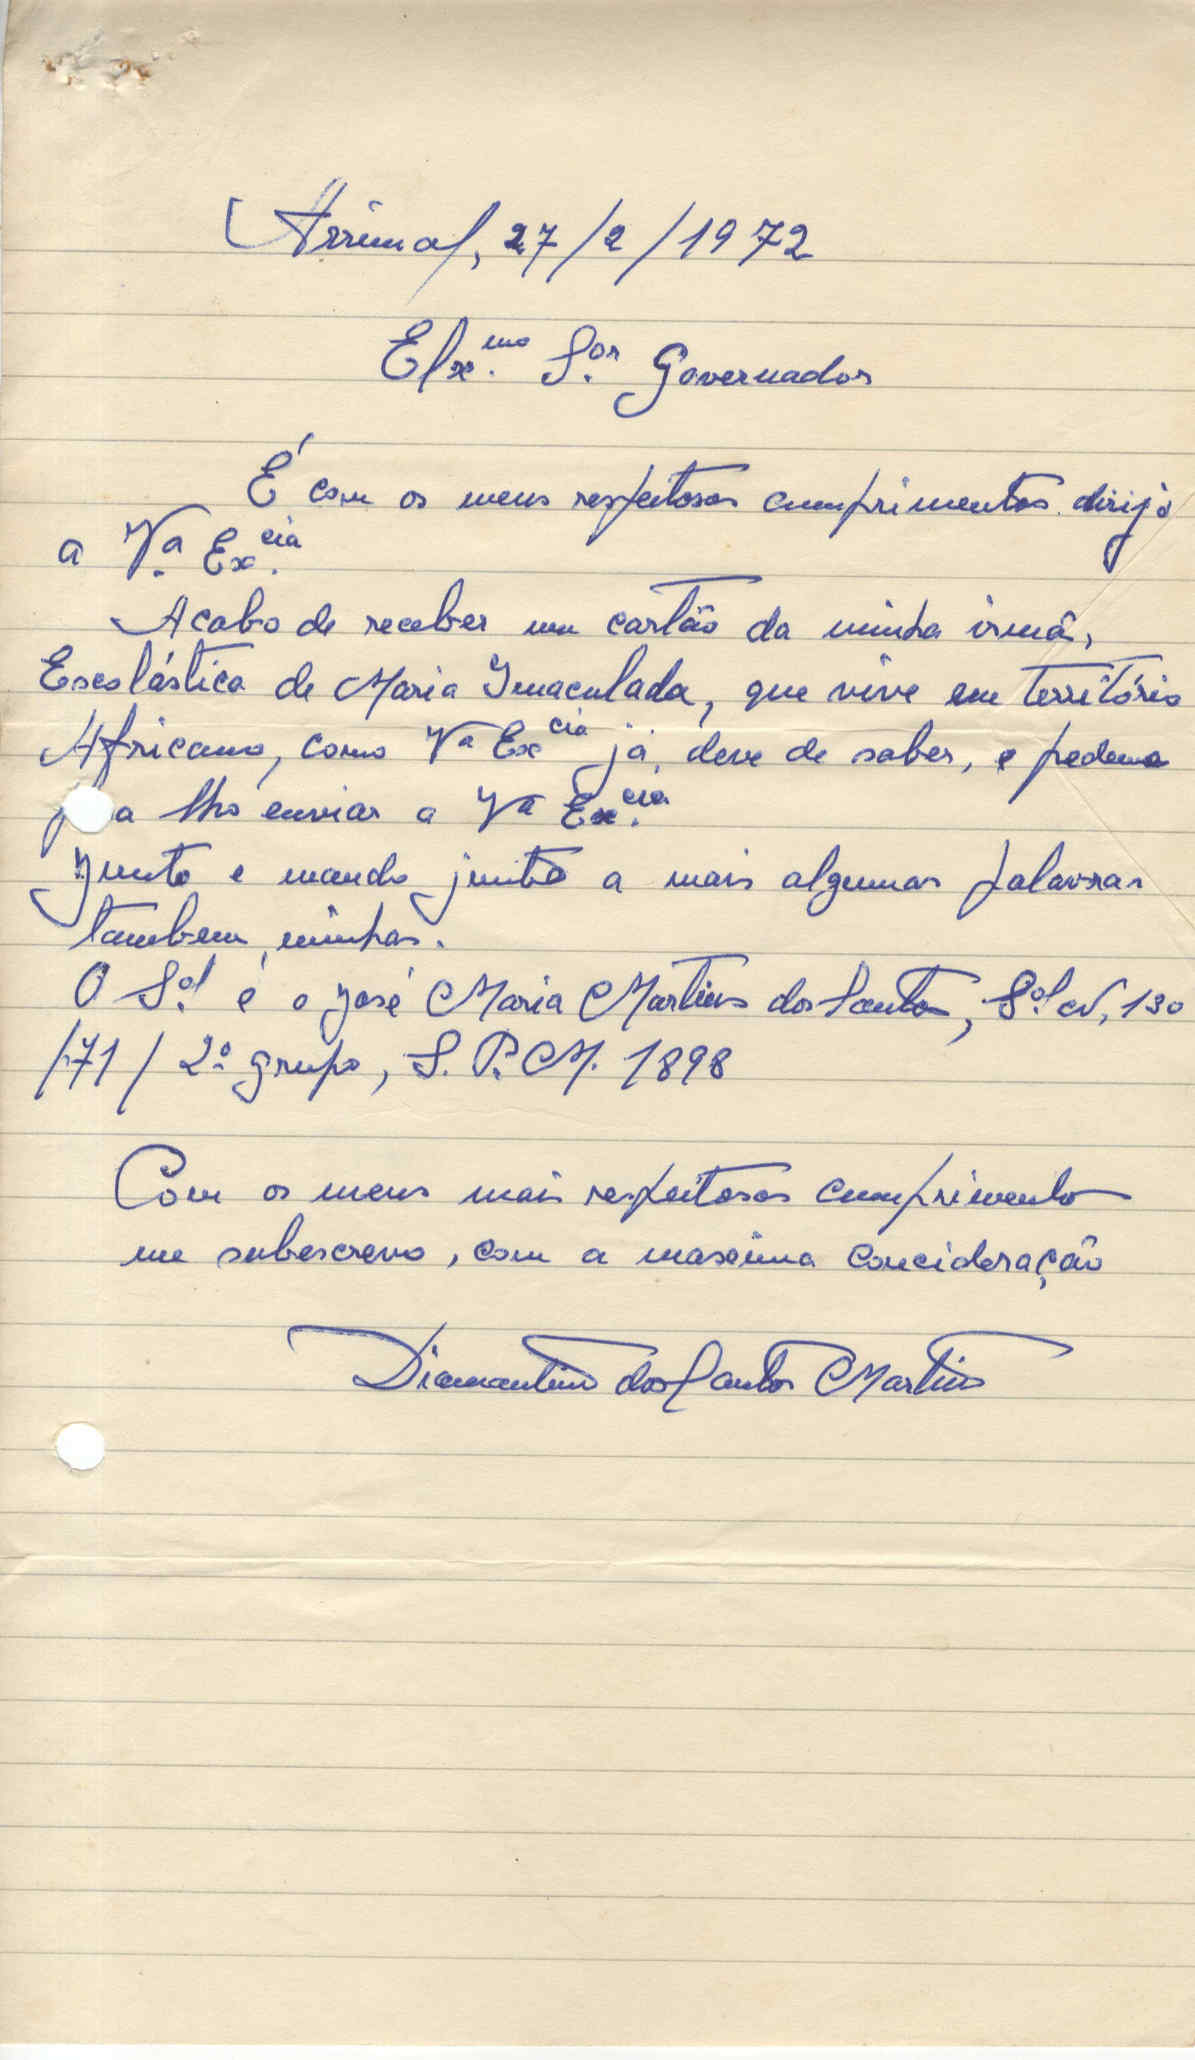 Arrimal, 27/2/1972
Elx.mo S.or Governador
É com os meus respeitosos cumprimentos dirijo
a V.a Ex.cia
Acabo de receber um cartão da minha irmã,
Escolástica de Maria Imaculada, que vive em território
Africano, como Va Excia já, deve de saber, e pedeme
a lho enviar a Va Ex.cia
Junto e mando junto a mais algumas palavras
tambem, minhas.
O S.ol é o José Maria Martins dos Santos, S.ol N, 130
/71/ 2º grupo, S. P. M. 1898
Com os meus mais respeitosos cumprimento
me subescrevo, com a maxima concideração
Diamantino dos Santos Martins